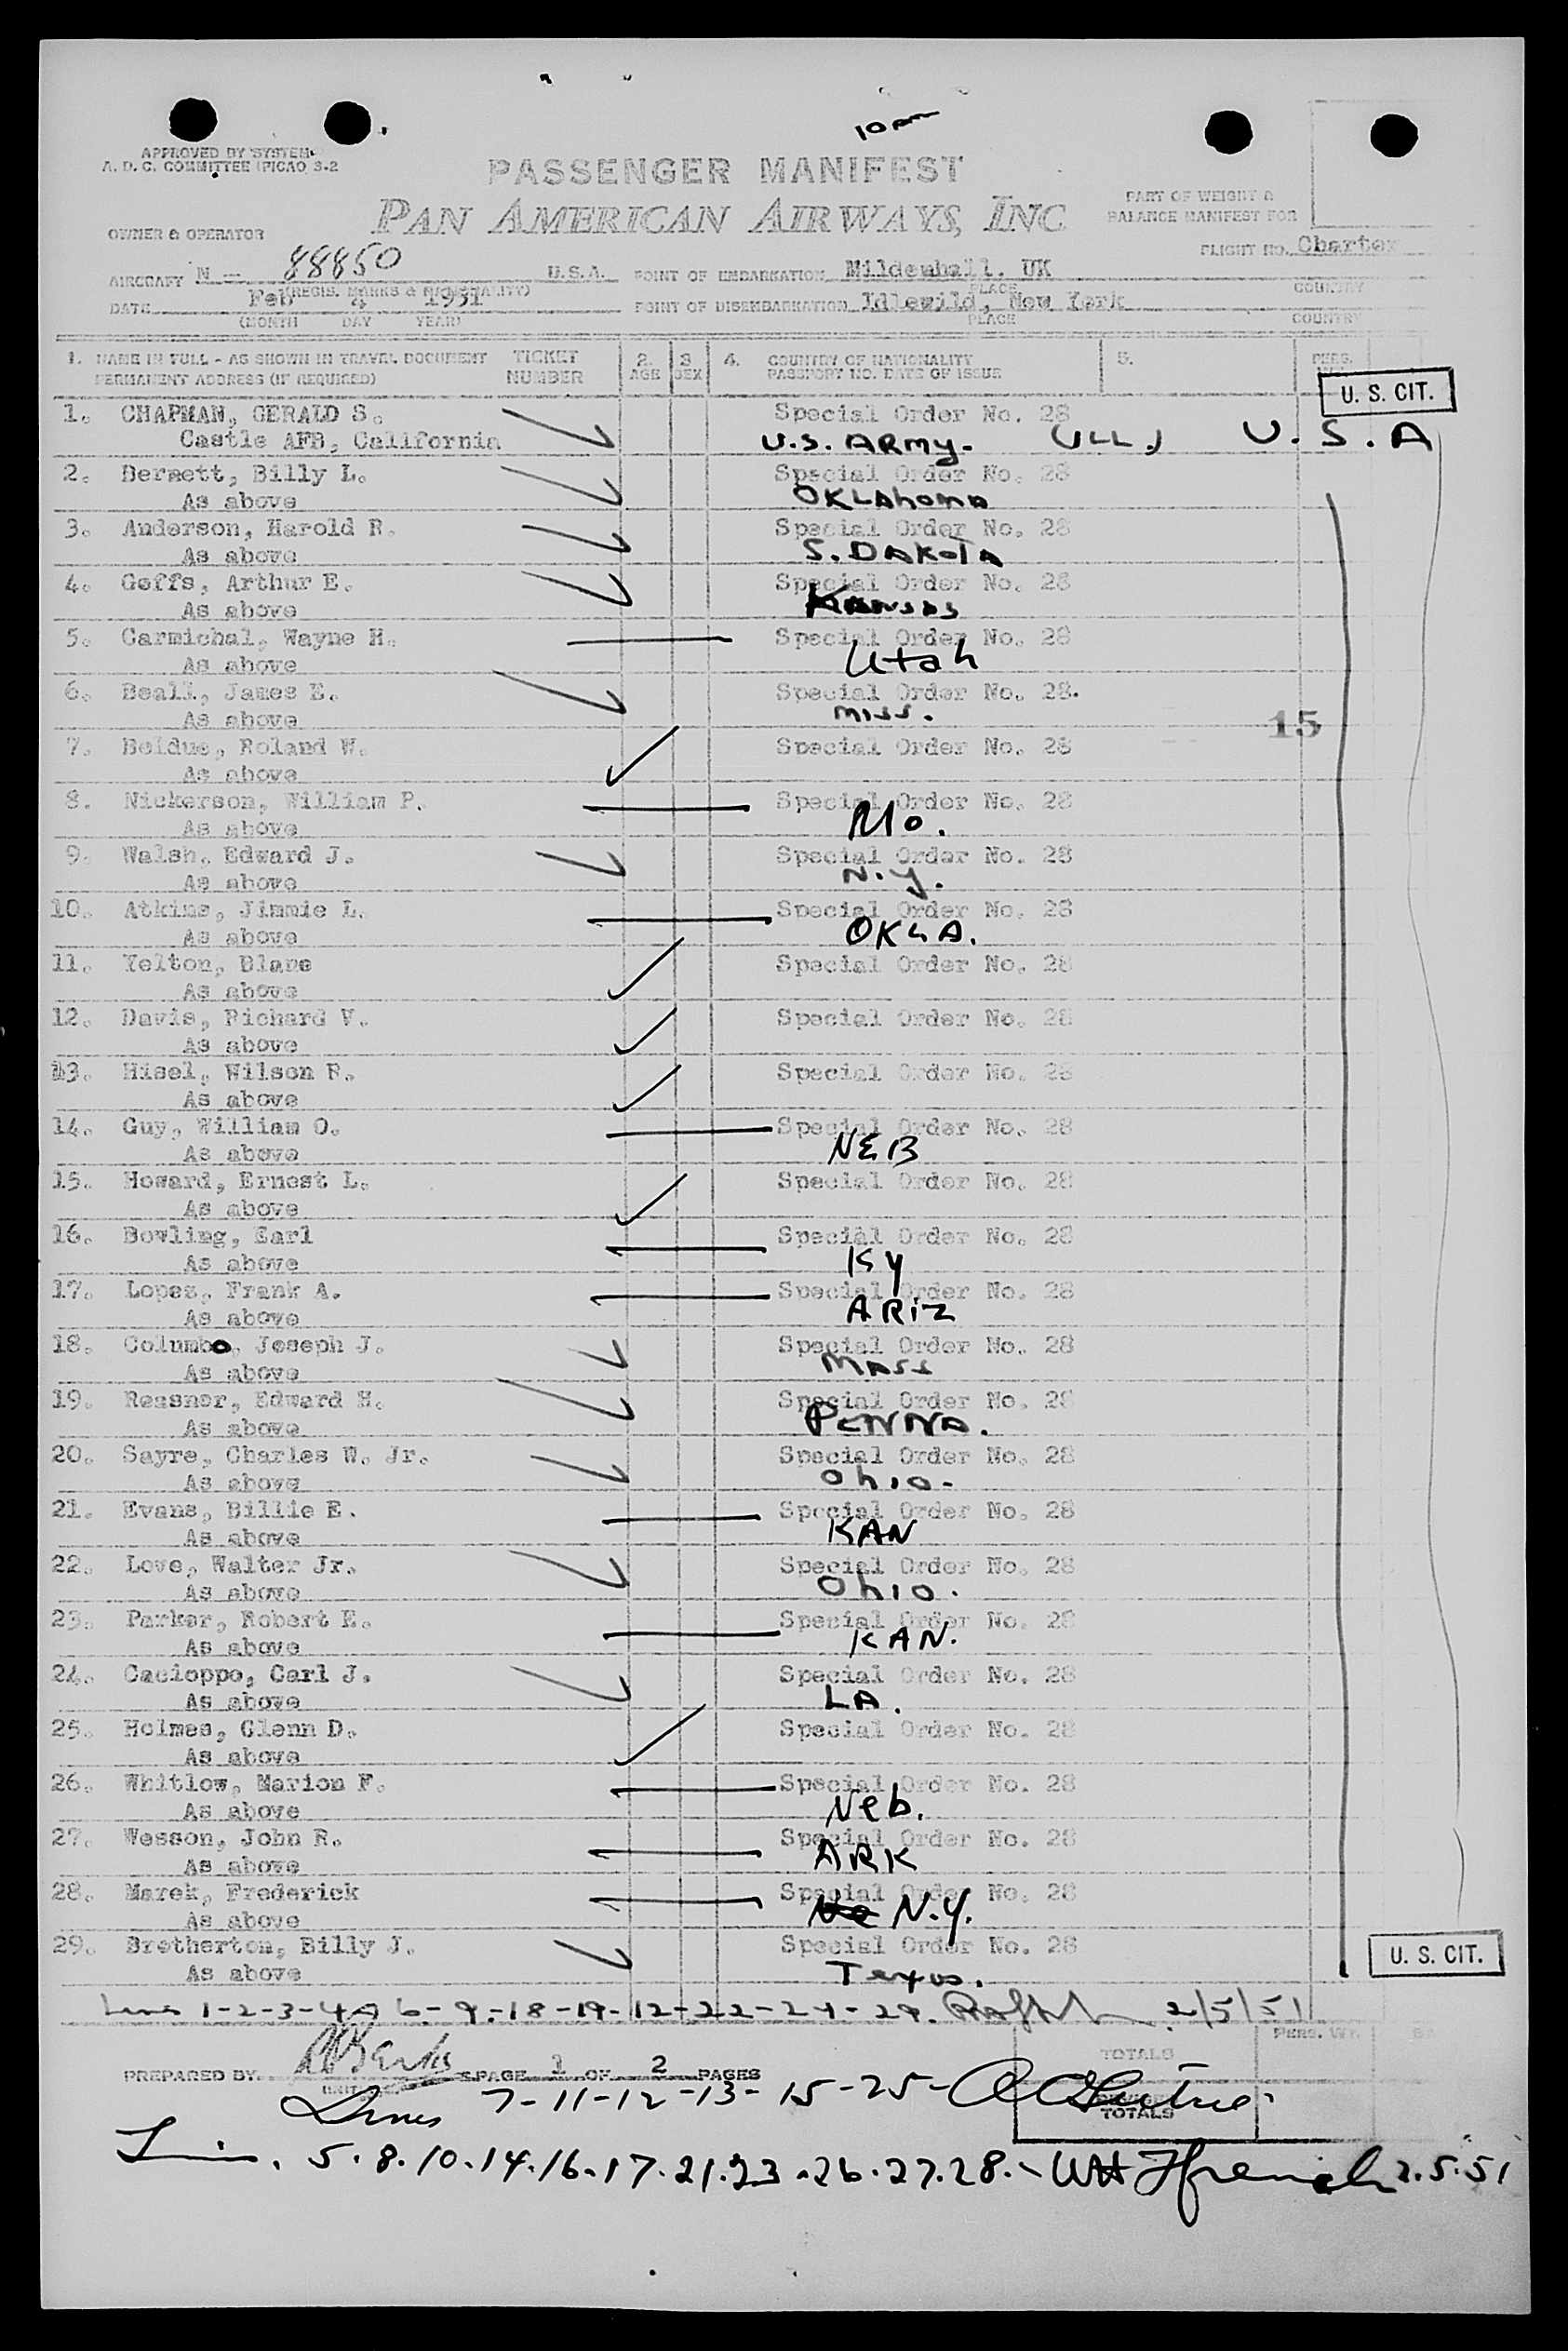 10 am
APPROVED BY SYSTEM
A. D. C. COMMITTEE (PICAO) S-2
PASSENGER MANIFEST
PAN AMERICAN AIRWAYS, INC
PART OF WEIGHT &
BALANCE MANIFEST FOR
OWNER & OPERATOR
FLIGHT NO. Charter
AIRCRAFT N - 88850 U.S.A. POINT OF EMBARKATION Mildenhall. UK
(REGIS. MARKS & NATIONALITY) PLACE COUNTRY
DATE Feb 4 1951 POINT OF DISEMBARKATION Idlewild, New York
(MONTH DAY YEAR) PLACE COUNTRY
1. NAME IN FULL - AS SHOWN IN TRAVEL DOCUMENT TICKET 2. 3. 4. COUNTRY OF NATIONALITY 5. PERS.
PERMANENT ADDRESS (IF REQUIRED) NUMBER AGE SEX PASSPORT NO. DATE OF ISSUE
U. S. CIT.
1. CHAPMAN, GERALD S. Special Order No. 28
Castle AFB, California U.S. ARMY. (ILL.) U. S. A
2. Bernett, Billy L. Special Order No. 28
As above OKLAhomA
3. Anderson, Harold R. Special Order No. 28
As above S. DAKOTA
4. Goffs, Arthur E. Special Order No. 28
As above KANSAS
5. Carmichal, Wayne H. Special Order No. 28
As above Utah
6. Beall, James E. Special Order No. 28.
As above miss.
15
7. Boldue, Roland W. Special Order No. 28
As above
8. Nickerson, William P. Special Order No. 28
As above Mo.
9. Walsh, Edward J. Special Order No. 28
As above N.Y.
10. Atkins, Jimmie L. Special Order No. 28
As above OKLA.
11. Yelton, Blane Special Order No. 28
As above
12. Davis, Richard V. Special Order No. 28
As above
13. Hisel, Wilson R. Special Order No. 28
As above
14. Guy, William O. Special Order No. 28
As above NEB
15. Howard, Ernest L. Special Order No. 28
As above
16. Bowling, Earl Special Order No. 28
As above Ky
17. Lopez, Frank A. Special Order No. 28
As above ARiz
18. Columbo, Joseph J. Special Order No. 28
As above MASS
19. Reasnor, Edward H. Special Order No. 28
As above PENNA.
20. Sayre, Charles W. Jr. Special Order No. 28
As above Ohio.
21. Evans, Billie E. Special Order No. 28
As above KAN
22. Love, Walter Jr. Special Order No. 28
As above Ohio.
23. Parker, Robert E. Special Order No. 28
As above KAN.
24. Cacioppo, Carl J. Special Order No. 28
As above LA.
25. Holmes, Glenn D. Special Order No. 28
As above
26. Whitlow, Marion F. Special Order No. 28
As above Neb.
27. Wesson, John R. Special Order No. 28
As above ARK
28. Marek, Frederick Special Order No. 28
As above N.Y.
29. Brotherton, Billy J. Special Order No. 28
As above Texas.
U. S. CIT.
Lines 1-2-3-4 6-9-18-19-12-22-24-29. 2/5/51
PERS. WT.
PREPARED BY PAGE 1 OF 2 PAGES TOTALS
Lines 7-11-12-13-15-25- TOTALS
5.8.10.14.16.17.21.23.26.27.28. 2.5.51